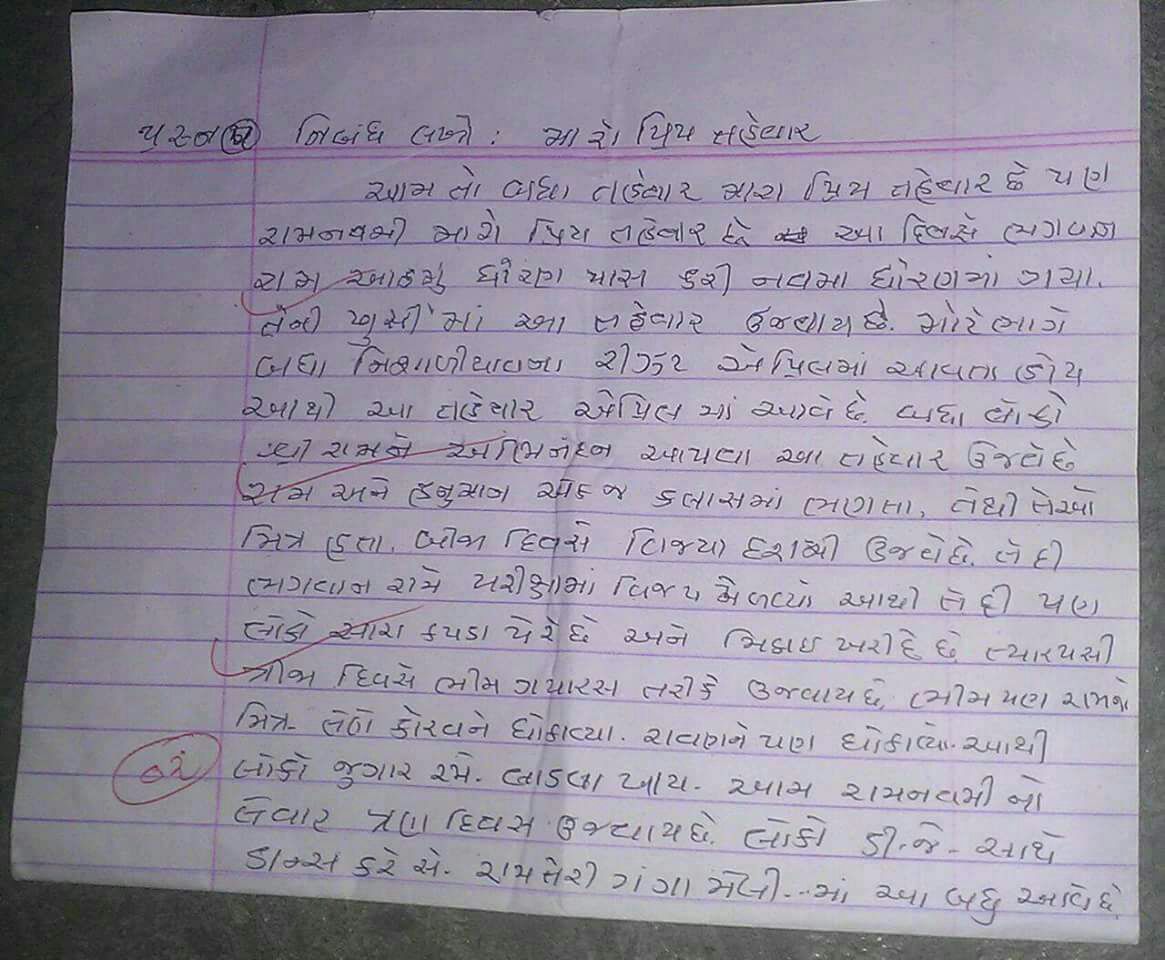 પ્રશ્ન નિબંધ લખો : મારો પ્રિય તહેવાર
આમ તો બધા તહેવાર મારા પ્રિય તહેવાર છે પણ
રામનવમી મારો પ્રિય તહેવાર છે આ દિવસે ભગવાન
રામ આઠમું ધોરણ પાસ કરી નવમા ધોરણમાં ગયા.
તેની ખુસીમાં આ તહેવાર ઉજવાય છે. મોટે ભાગે
બધા નિશાળીયાવના રીઝલ્ટ એપ્રિલમાં આવતા હોય
આથી આ તહેવાર એપ્રિલ માં આવે છે. બધા લોકો
શ્રી રામને અભિનંદન આપવા આ તહેવાર ઉજવે છે
રામ અને હનુમાન એક જ કલાસમાં ભણતા, તેથી તેઓ
મિત્ર હતા. બીજા દિવસે વિજયા દશમી ઉજવે છે. તે દી
ભગવાન રામે પરીક્ષામાં વિજય મેળવ્યો આથી તે દી પણ
લોકો સારા કપડા પેરે છે અને મિઠાઇ ખરીદે છે ત્યારપસી
ત્રીજા દિવસે ભીમ ગયારસ તરીકે ઉજવાય છે, ભીમ પણ રામનો
મિત્ર. તેણે કોરવને ધોકાવ્યા. રાવણને પણ ધોકાવ્યો. આથી
લોકો જુગાર રમે. લાડવા ખાય. આમ રામનવમી નો
તેવાર ત્રણ દિવસ ઉજવાય છે. લોકો ડી.જે. સાથે
ડાન્સ કરે સે. રામ તેરી ગંગા મેલી...માં આ બધુ આવે છે.
૦૨